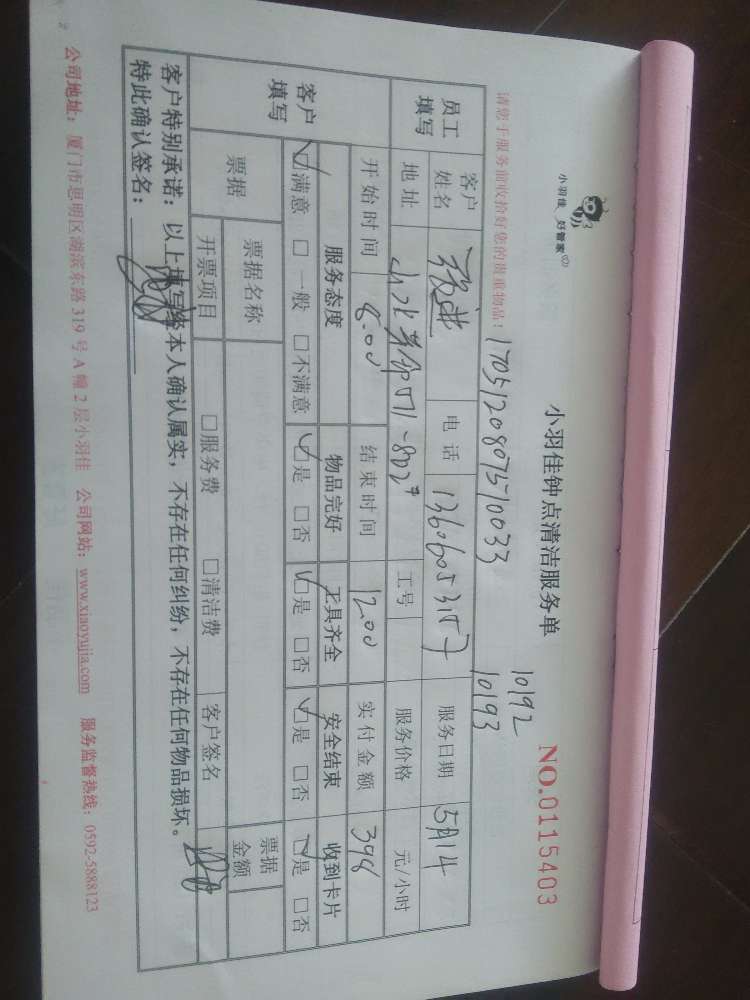 小羽佳 好管家
小羽佳钟点清洁服务单
NO.0115403
10192
10193
请您于服务前收拾好您的贵重物品！
170512080751 0033
员工填写
客户姓名
电话
服务日期 5月14
地址
工号
服务价格 元/小时
开始时间 8.00 结束时间 12.00 实付金额 398
客户填写
服务态度 物品完好 工具齐全 安全结束 收到卡片
☑满意 □一般 □不满意 ☑是 □否 ☑是 □否 ☑是 □否 ☑是 □否
票据
票据名称
票据金额
开票项目 □服务费 □清洁费 客户签名
客户特别承诺：以上填写经本人确认属实，不存在任何纠纷，不存在任何物品损坏。
特此确认签名：
公司地址：厦门市思明区湖滨东路319号A幢2层小羽佳 公司网站：www.xiaoyujia.com 服务监督热线：0592-5888123